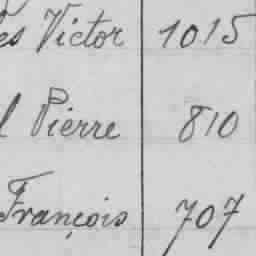 Victor 1015
Pierre 810
François 707